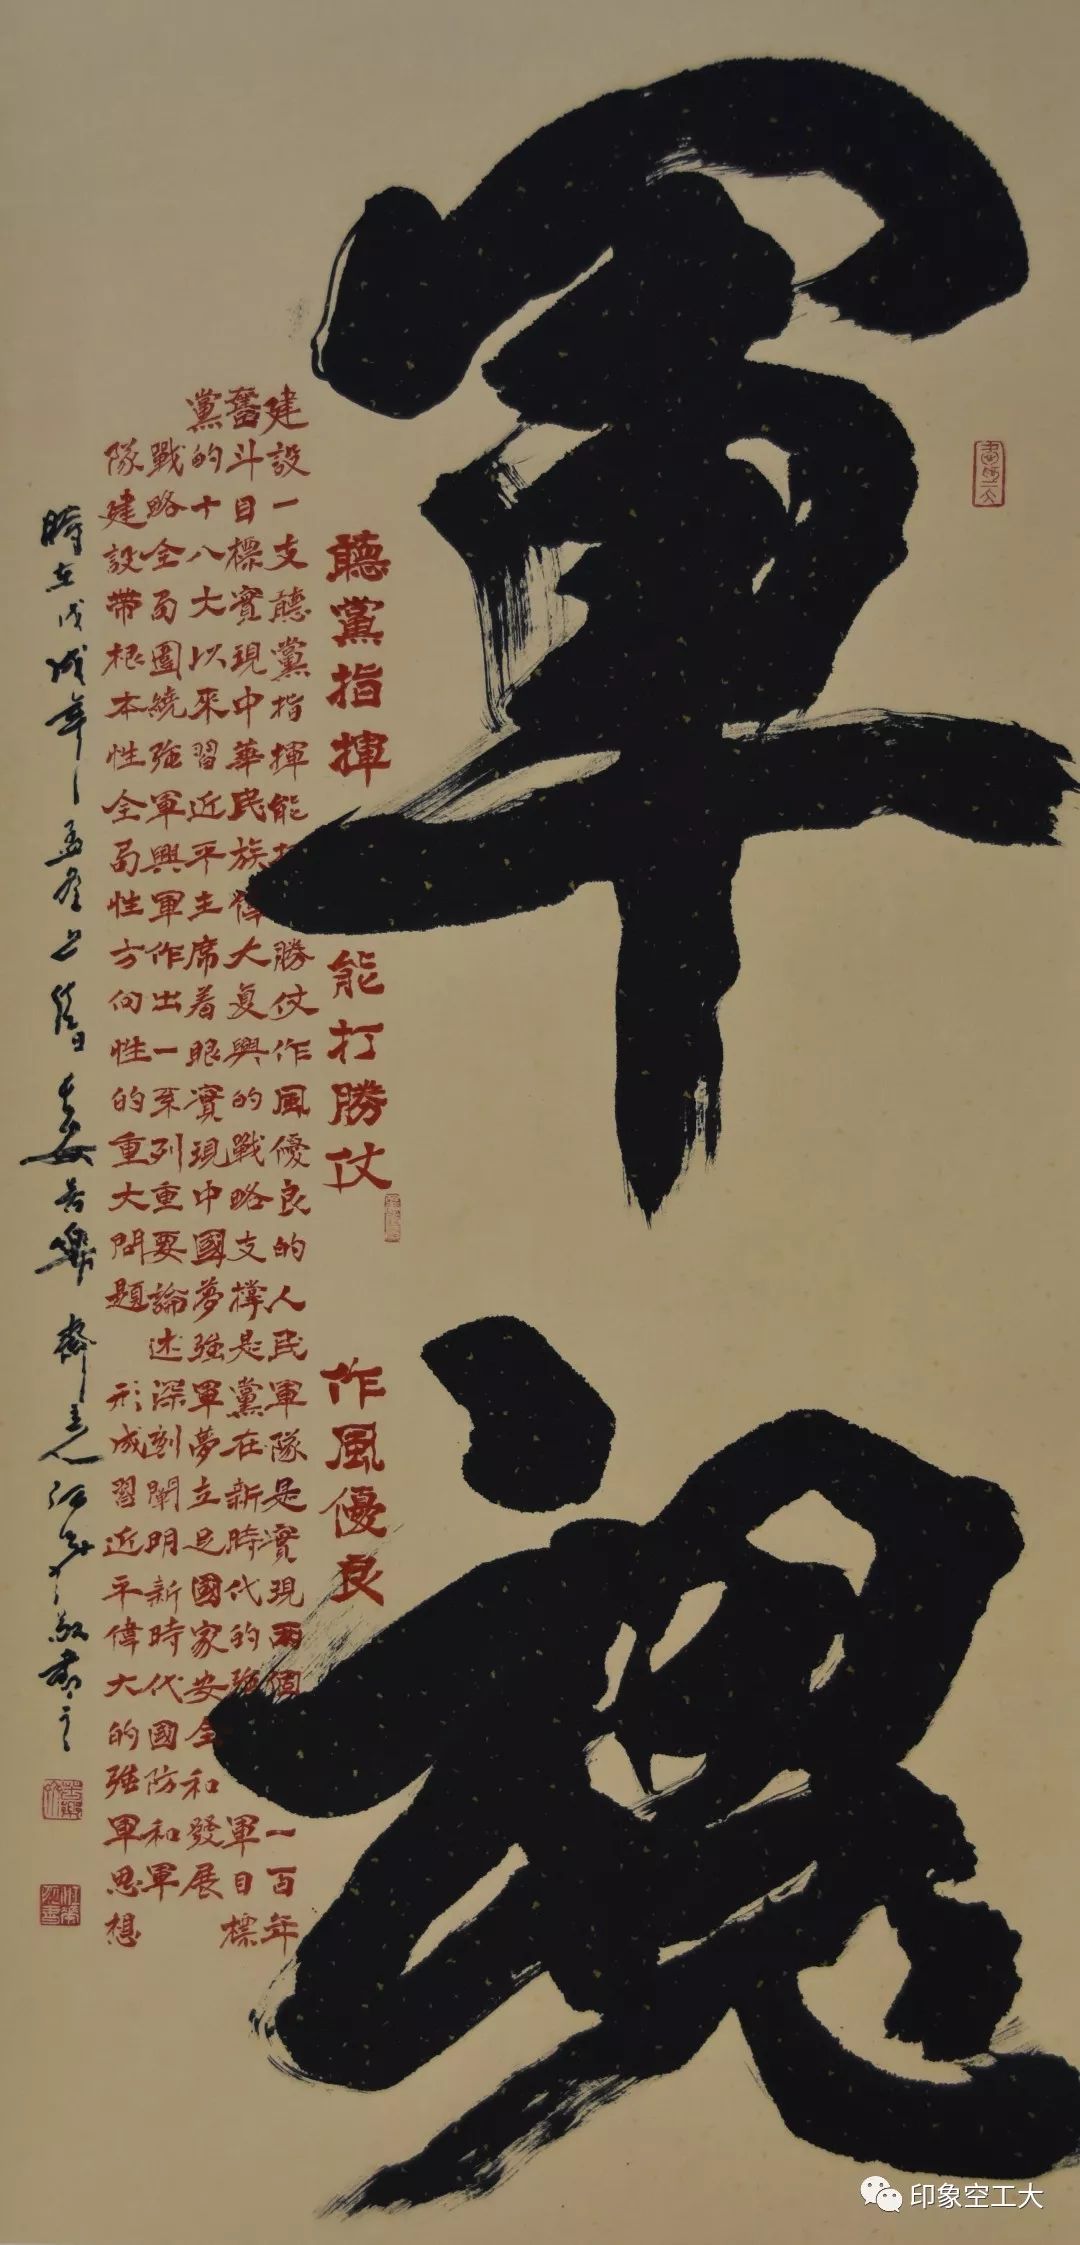 軍魂
聽黨指揮 能打勝仗 作風優良
建設一支聽黨指揮能打勝仗作風優良的人民軍隊是實現兩個一百年
奮斗目標實現中華民族偉大复興的戰略支撐是黨在新時代的強軍目標
黨的十八大以來習近平主席着眼實現中國夢強軍夢立足國家安全和發展
戰略全局圍繞強軍興軍作出一系列重要論述深刻闡明新時代國防和軍
隊建設帶根本性全局性方向性的重大問題 形成習近平偉大的強軍思想
時在戊戌年孟冬 苦樂齋主人 敬書之
印象空工大